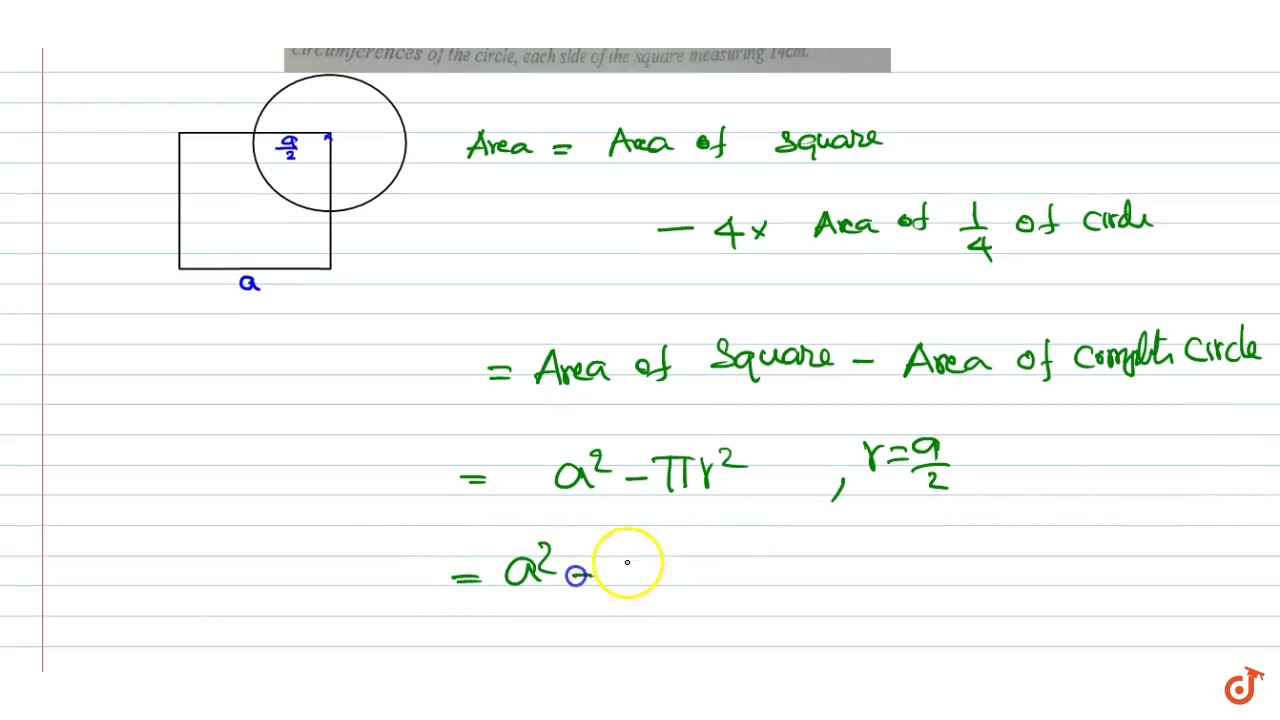 circumferences of the circle, each side of the square measuring 14cm.
a/2
a
Area = Area of square
- 4 × Area of 1/4 of circle
= Area of square - Area of complete circle
= a² - πr² , r = a/2
= a² -